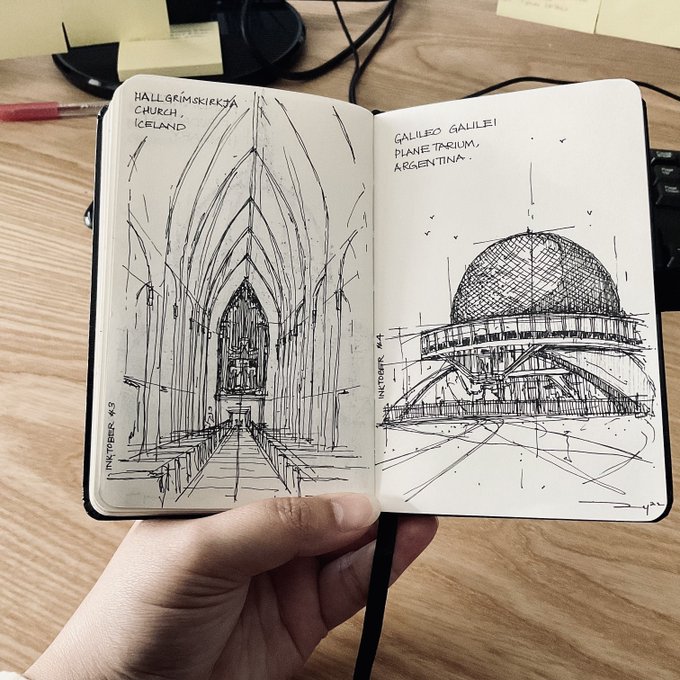 HALLGRÍMSKIRKJA
CHURCH,
ICELAND
INKTOBER #3
GALILEO GALILEI
PLANETARIUM,
ARGENTINA.
INKTOBER #4